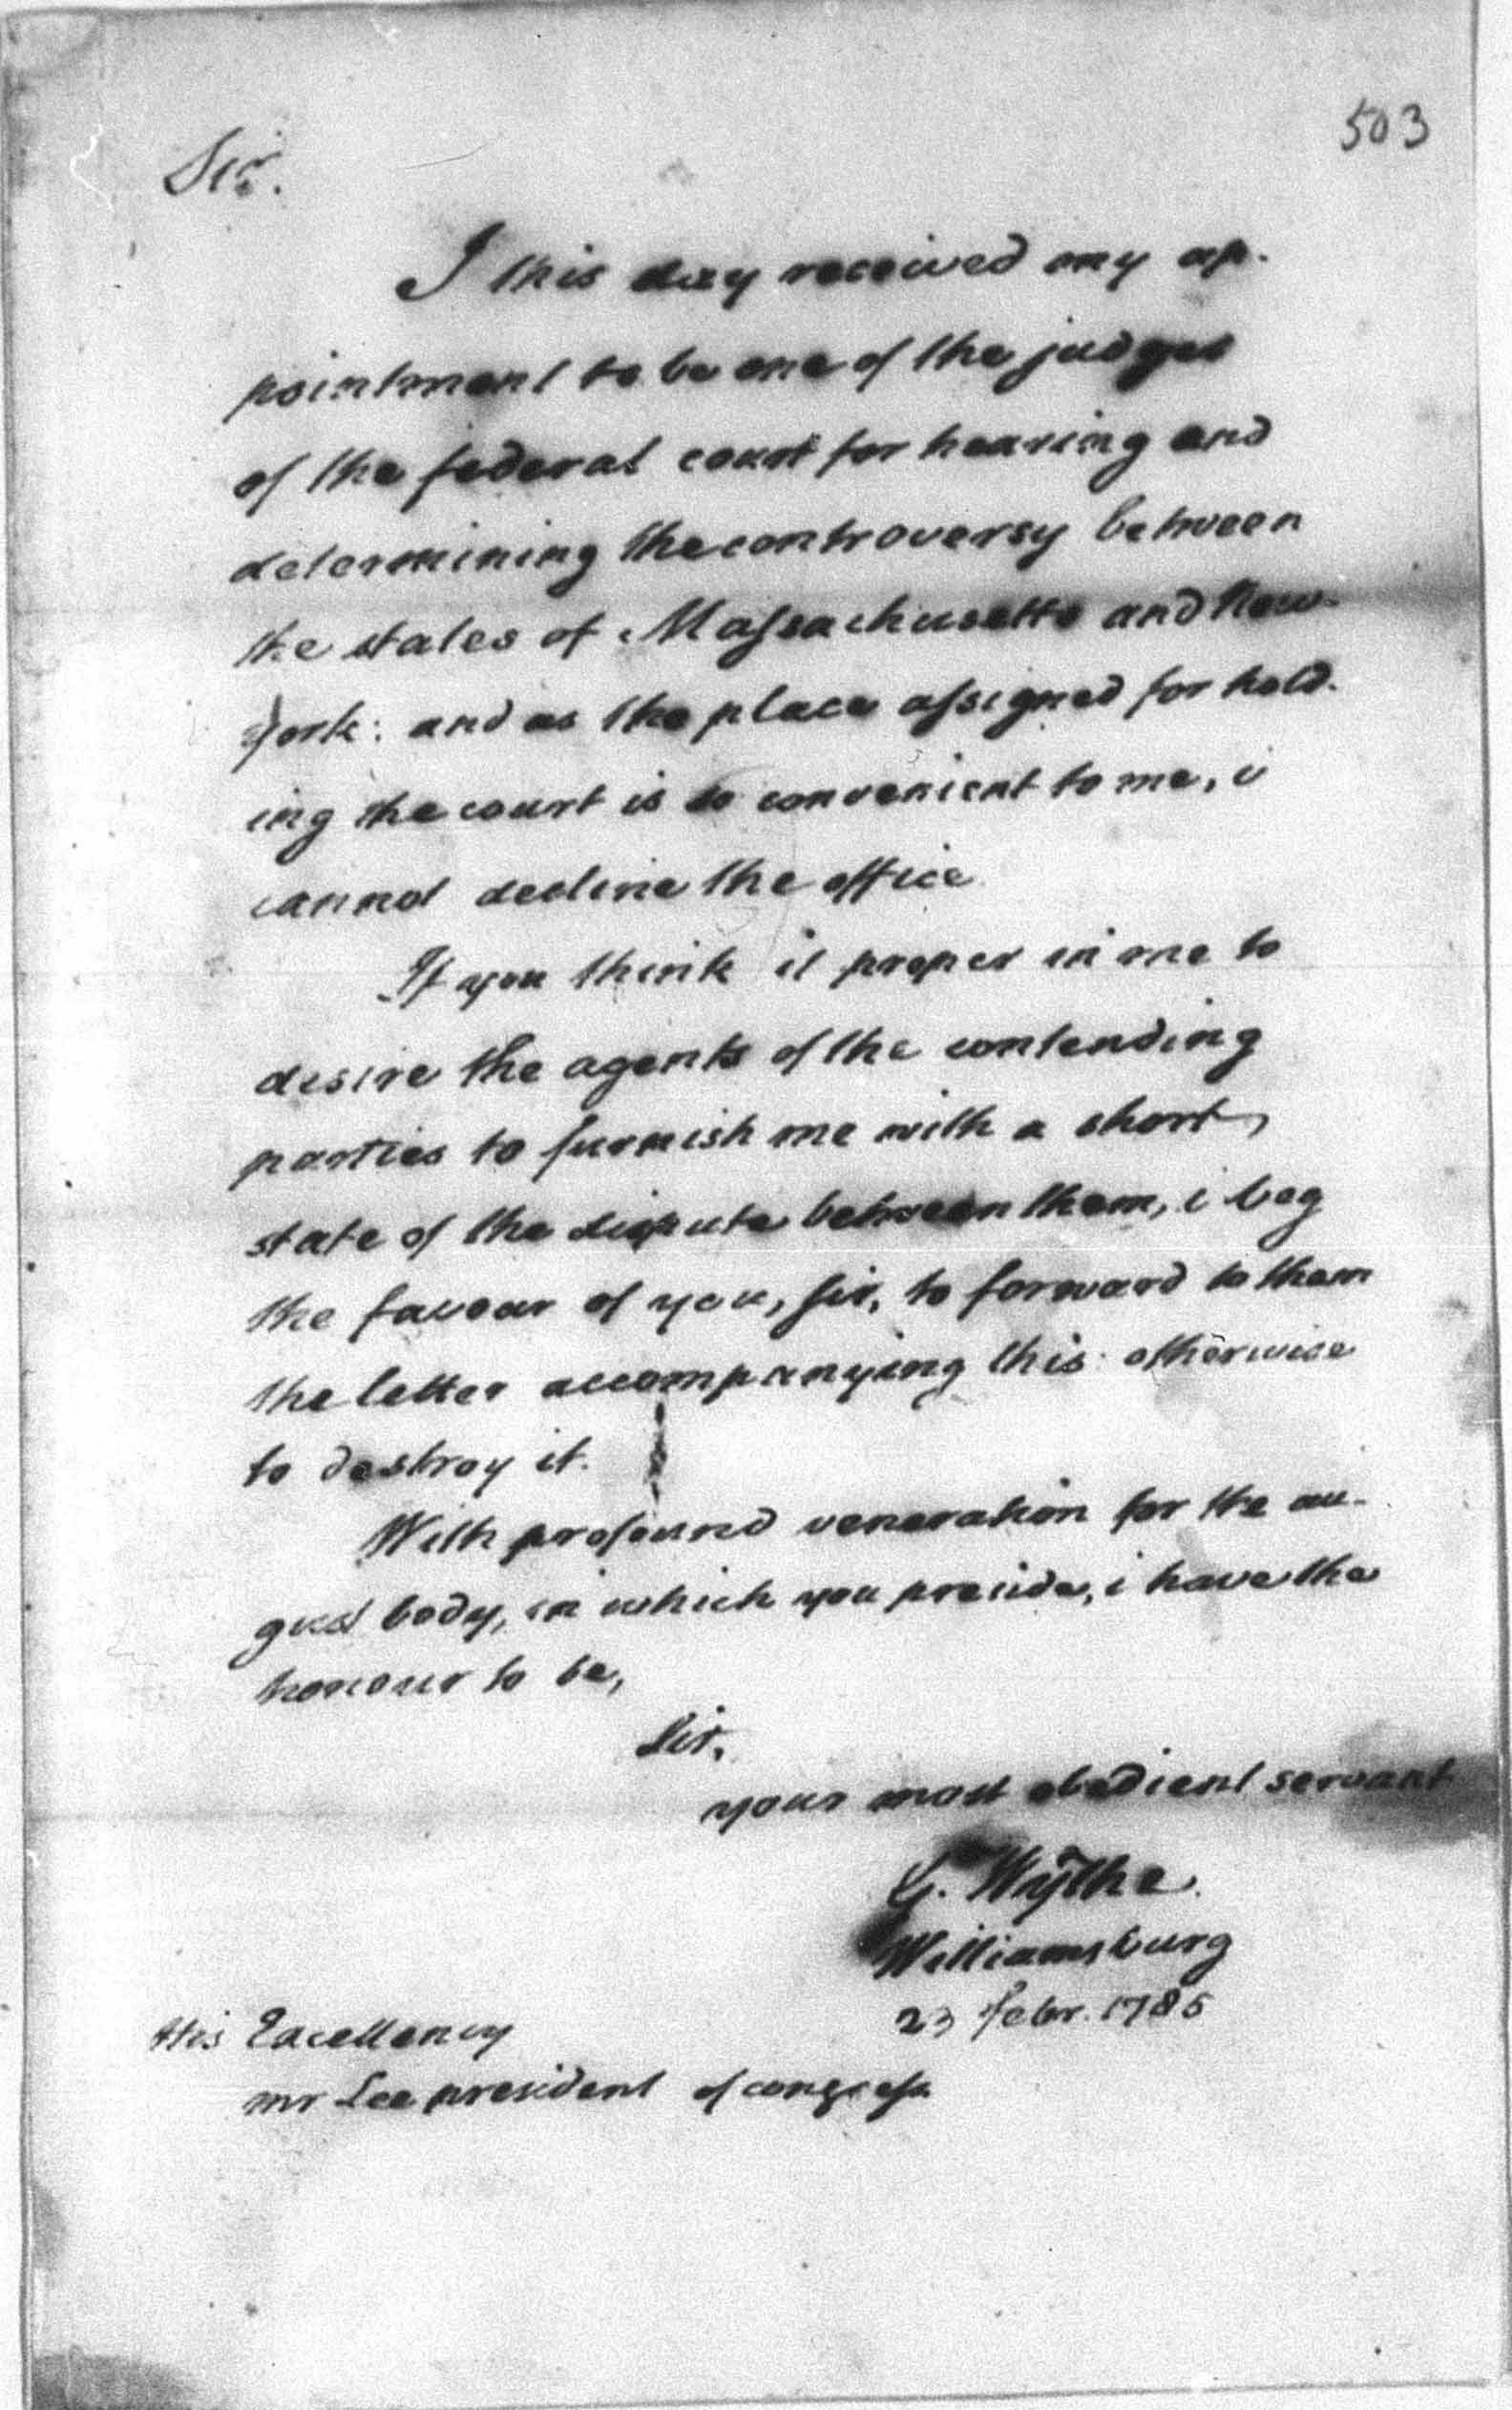 503
Sir.
I this day received my ap-
pointment to be one of the judges
of the federal court for hearing and
determining the controversy between
the states of Massachusetts and New-
york: and as the place assigned for hold-
ing the court is so convenient to me, i
cannot decline the office.
If you think it proper in me to
desire the agents of the contending
parties to furnish me with a short
state of the dispute between them, i beg
the favour of you, sir, to forward to them
the letter accompanying this: otherwise
to destroy it.
With profound veneration for the au-
gust body, in which you preside, i have the
honour to be,
Sir,
your most obedient servant
G. Wythe.
Williamsburg
23 febr. 1785
His Excellency
mr Lee president of congress